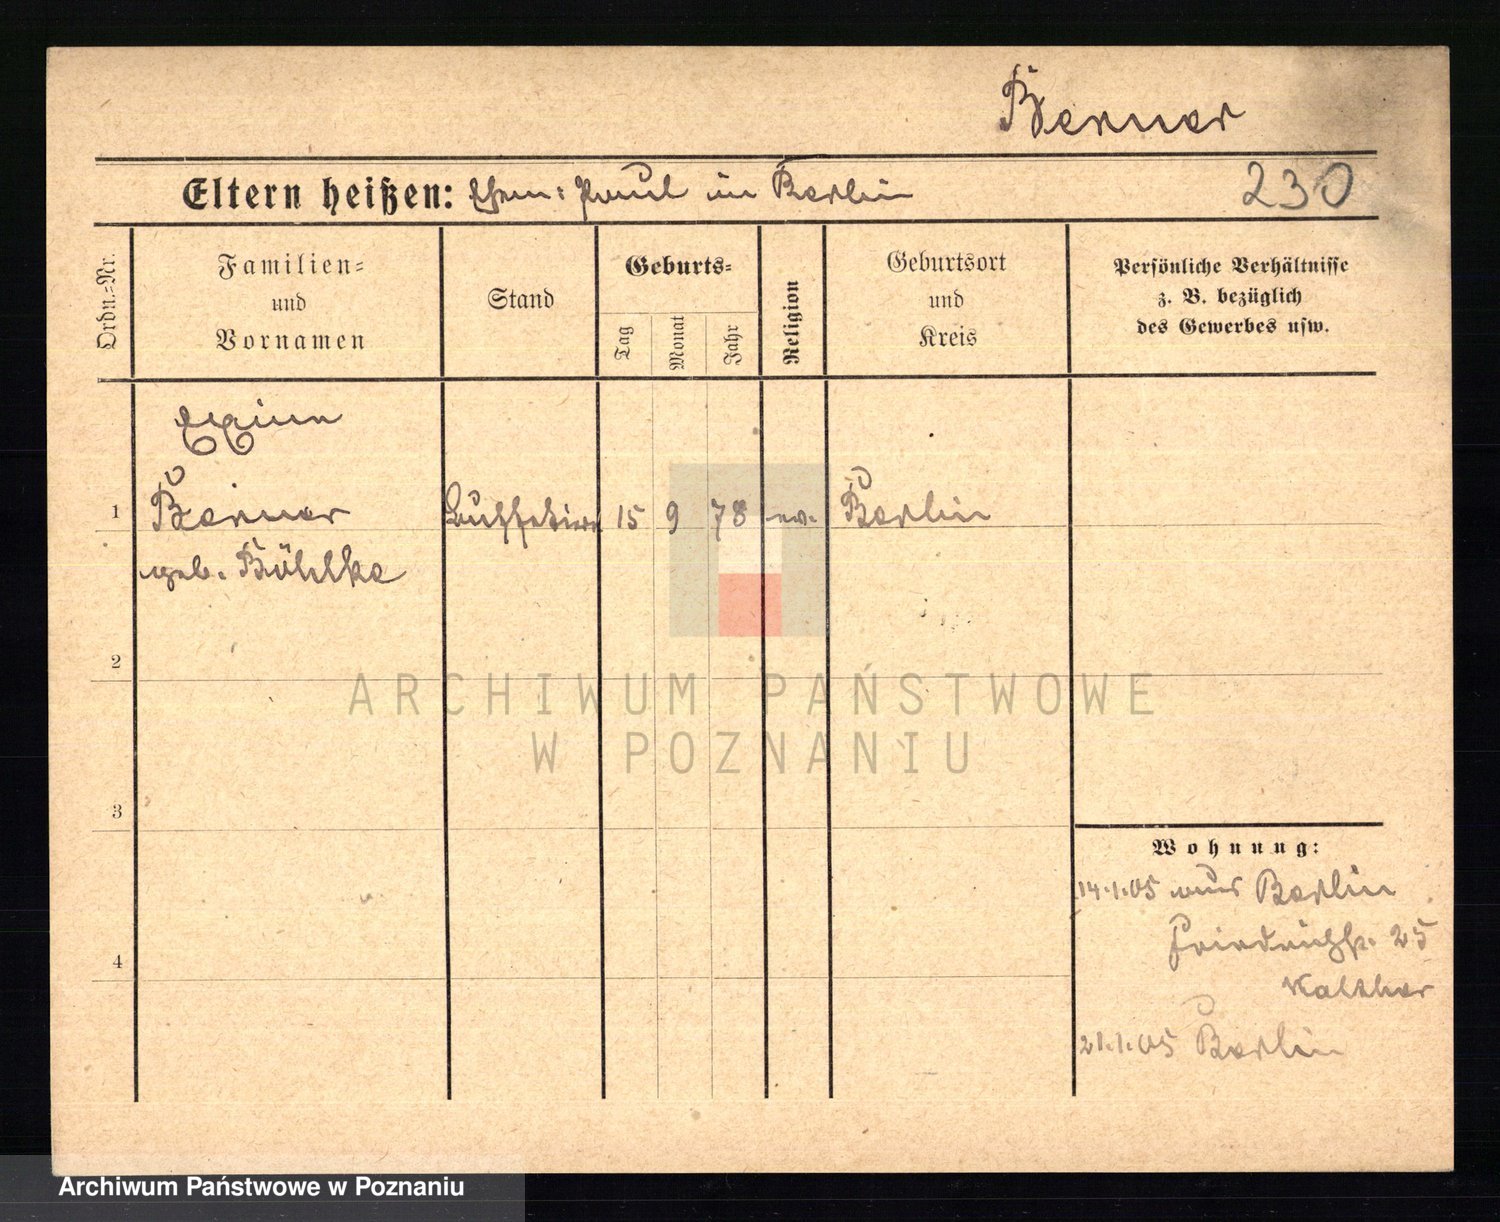 Berner
Eltern heißen: Ehem: Paul in Berlin 230
Ordn.-Nr.
Familien-
und
Vornamen
Stand
Geburts-
Tag
Monat
Jahr
Religion
Geburtsort
und
Kreis
Persönliche Verhältnisse
z. B. bezüglich
des Gewerbes usw.
1 Berner 15 9 78 ev. Berlin
geb. Böhlke
2
3
4
Wohnung:
14.1.05 aus Berlin
Friedrichstr. 25
Kalther
21.1.05 Berlin
ARCHIWUM PAŃSTWOWE
W POZNANIU
Archiwum Państwowe w Poznaniu